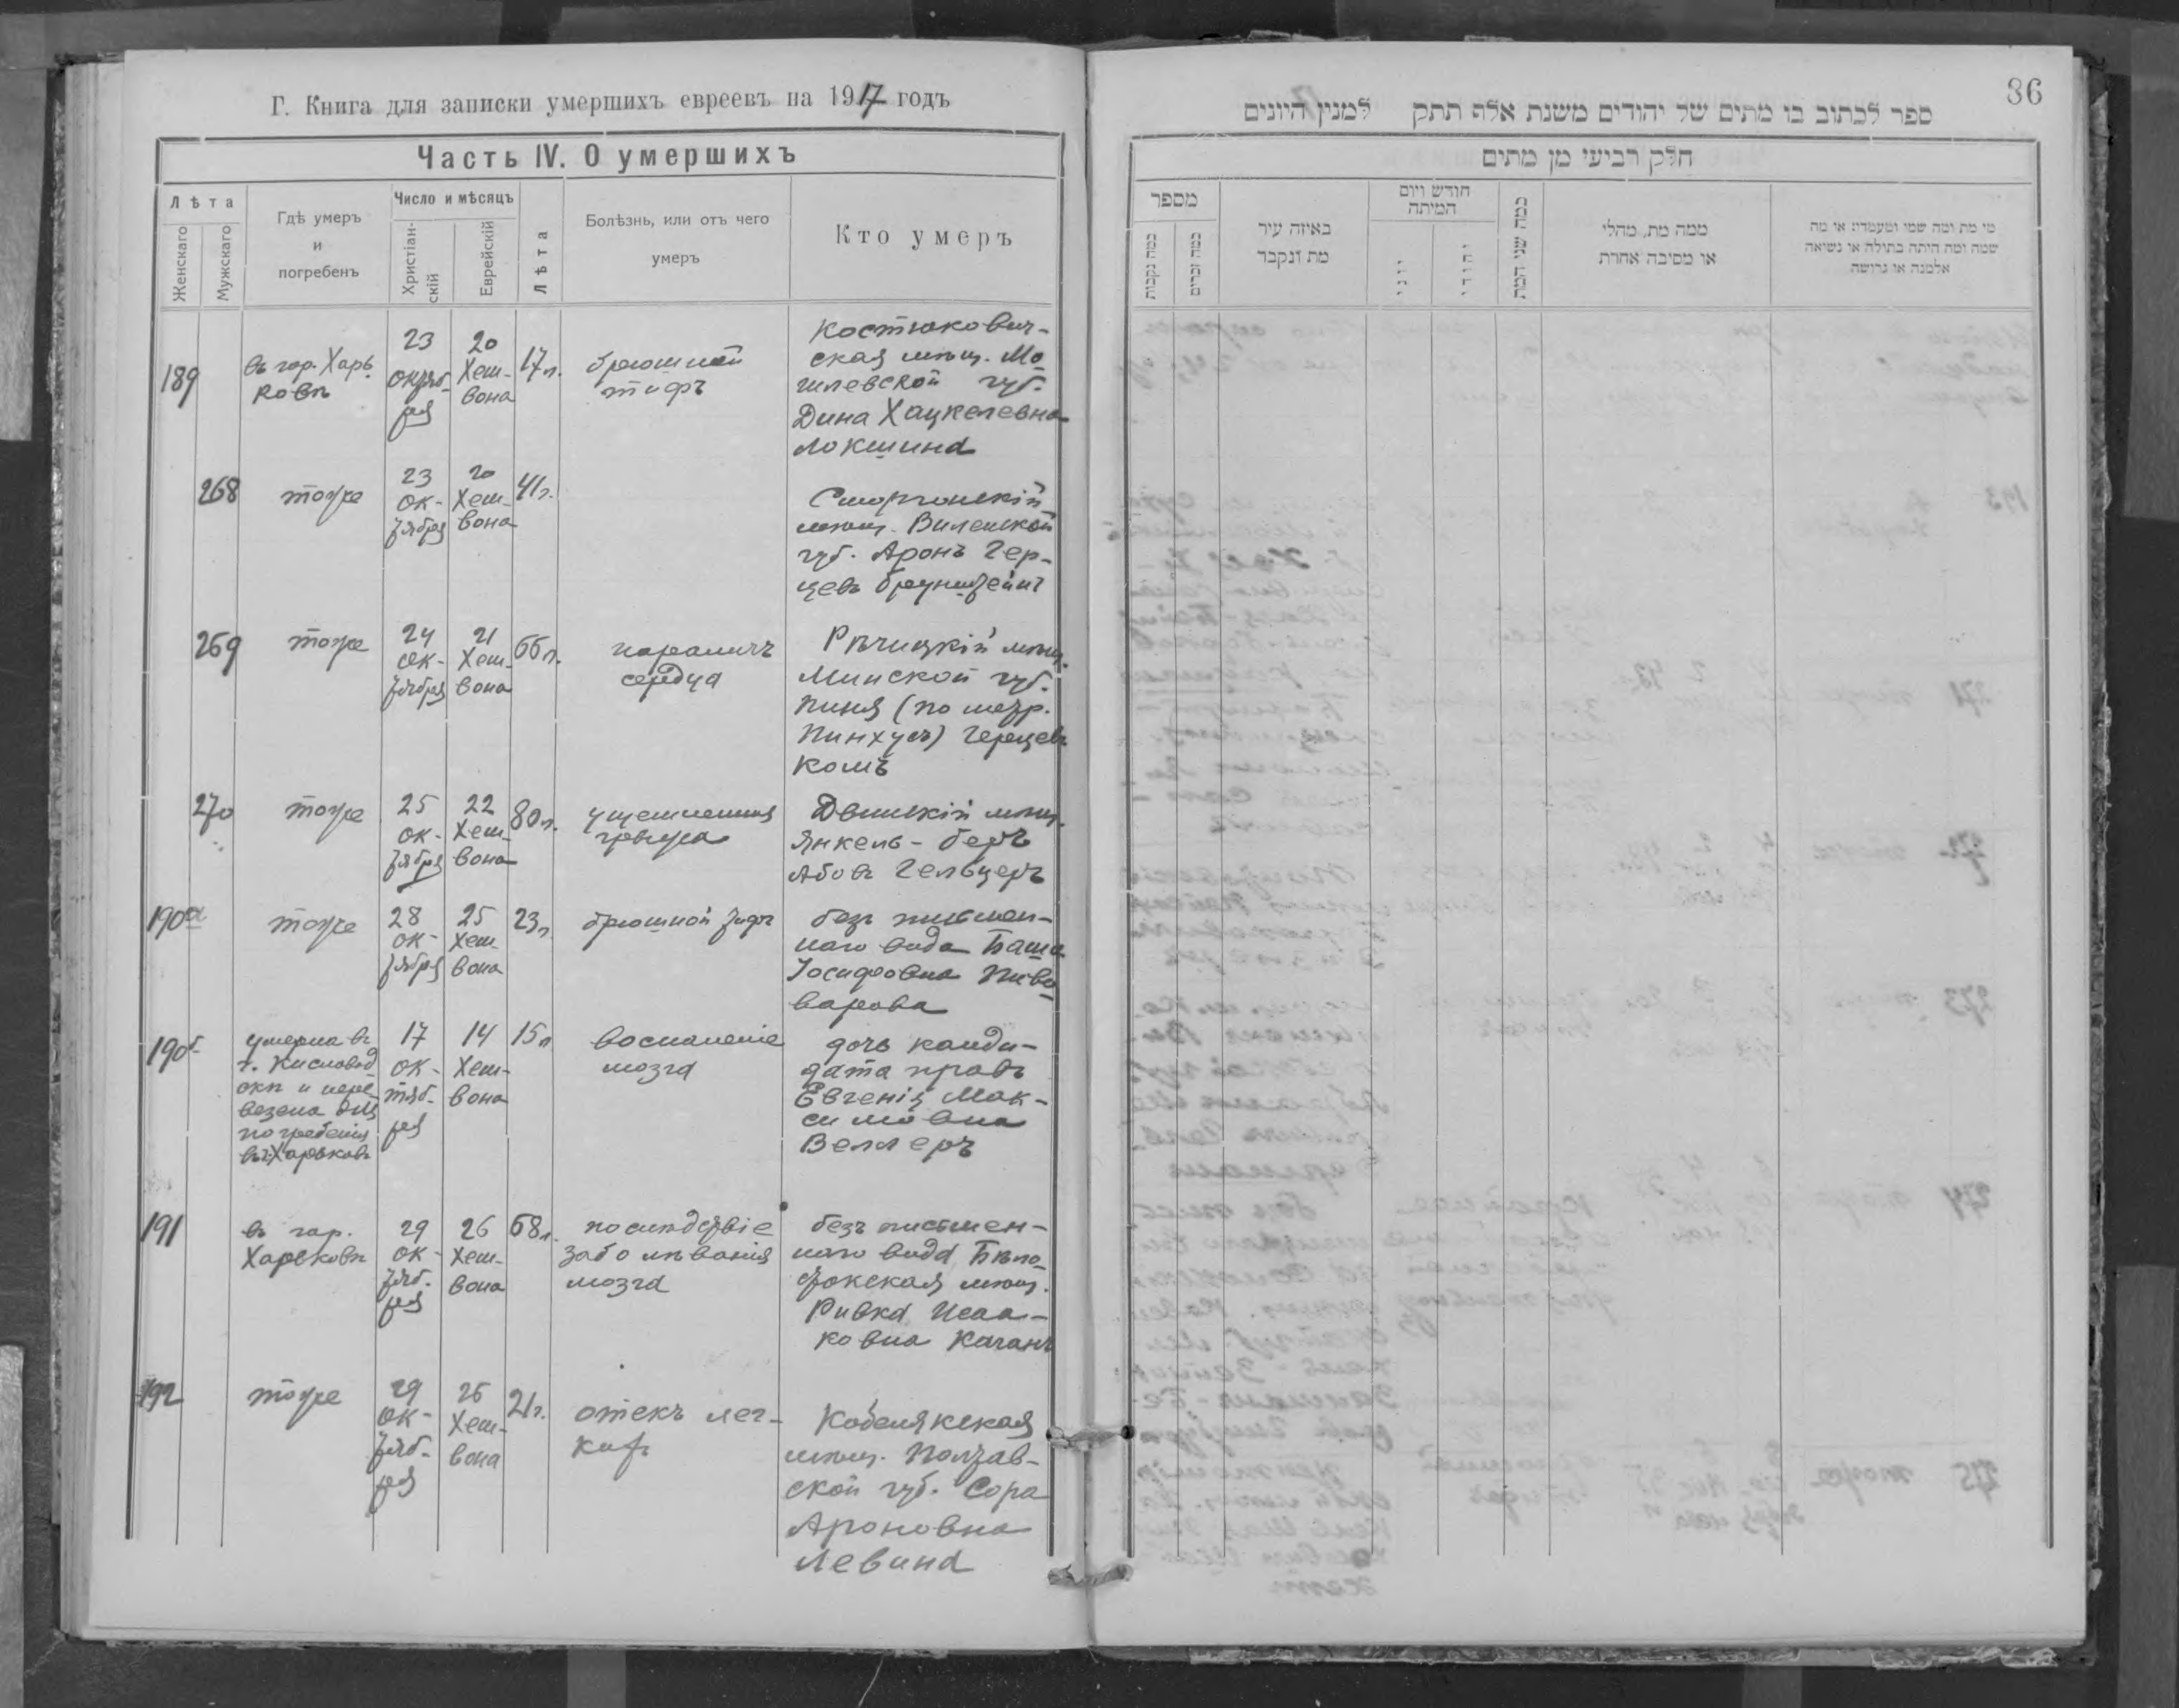 Г. Книга для записки умершихъ евреевъ на 1917 годъ
Часть IV. О умершихъ
Лѣта
Женскаго
Мужскаго
Гдѣ умеръ
и
погребенъ
Число и мѣсяцъ
Христіан-
скій
Еврейскій
Лѣта
Болѣзнь, или отъ чего
умеръ
Кто умеръ
189
въ гор. Харь
ковѣ
23
октяб-
ря
20
Хеш-
вона
17 л.
брюшной
тифъ
Костюкович-
ская мѣщ. Мо
гилевской губ.
Дина Хацкелевна
Локшина
268
тоже
23
ок-
тября
20
Хеш-
вона
41 г.
Сморгонскій
мѣщ. Виленской
губ. Аронъ Гер-
цевъ Браунштейнъ
269
тоже
24
ок-
тября
21
Хеш-
вона
66 л.
параличъ
сердца
Рѣчицкій мѣщ.
Минской губ.
Пиня (по метр.
Пинхусъ) Герцевъ
270
тоже
25
ок-
тября
22
Хеш-
вона
80 л.
ущемленная
грыжа
Двинскій мѣщ.
Янкель-Беръ
Абовъ Гельцеръ
190а
тоже
28
ок-
тября
25
Хеш-
вона
23 л.
брюшной тифъ
безъ письмен-
наго вида Баша
Іосифовна Пиво
варова
190б
умерла въ
г. Кисловод
скѣ и пере
везена для
погребенія
въ Харьковъ
17
ок-
тяб-
ря
14
Хеш-
вона
15 л
воспаленіе
мозга
дочь канди-
дата правъ
Евгенія Мак-
симовна
Веллеръ
191
въ гор.
Харьковѣ
29
ок-
тяб-
ря
26
Хеш-
вона
68 л.
послѣдствіе
заболѣванія
мозга
безъ письмен-
наго вида Бѣло
стокская мѣщ.
Ривка Исаа-
ковна Каганъ
192
тоже
29
ок-
тяб-
ря
26
Хеш-
вона
21 г.
отекъ лег-
кихъ
Кобелякская
мѣщ. Полтав-
ской губ. Сора
Ароновна
Левина
86
ספר לכתוב בו מתים של יהודים משנת אלף תתק למנין היונים
חלק רביעי מן מתים
מספר
כמה נקבות
כמה זכרים
באיזה עיר
מת ונקבר
חודש ויום
המיתה
יוני
יהודי
כמה שני המת
ממה מת, מחלי
או מסיבה אחרת
מי מת ומה שמו ומעמדו או מה
שמה ומה היתה בתולה או נשואה
אלמנה או גרושה